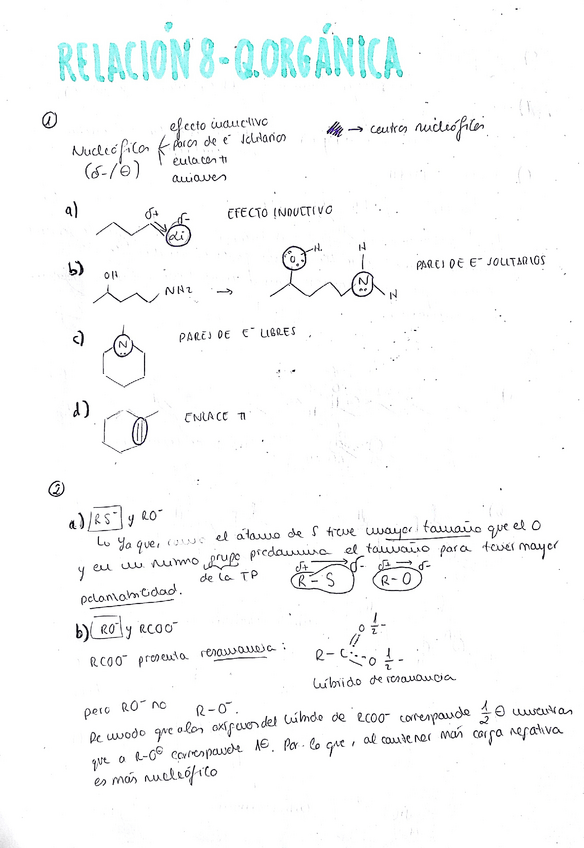 RELACIÓN 8 - Q.ORGÁNICA
①
efecto inductivo
Nucleófilos
pares de e⁻ solitarios
(δ-/⊖)
enlaces π
aniones
→ centros nucleófilos
a)
δ+ δ-
Li
EFECTO INDUCTIVO
b)
OH
NH2
→
O H
N H H
PARES DE E⁻ SOLITARIOS
c)
N
PARES DE E⁻ LIBRES
d)
ENLACE π
②
a) RS⁻ y RO⁻
Ya que, el átomo de S tiene mayor tamaño que el O
y en un mismo grupo predomina el tamaño para tener mayor
de la TP
polarizabilidad.
δ+ δ- δ+ δ-
R - S R - O
b) RO⁻ y RCOO⁻
RCOO⁻ presenta resonancia:
O ½ -
R - C
O ½ -
híbrido de resonancia
pero RO⁻ no R - O⁻.
De modo que a los oxígenos del híbrido de RCOO⁻ corresponde ½ ⊖ mientras
que a R-O⊖ corresponde 1⊖. Por lo que, al contener más carga negativa
es más nucleófilo